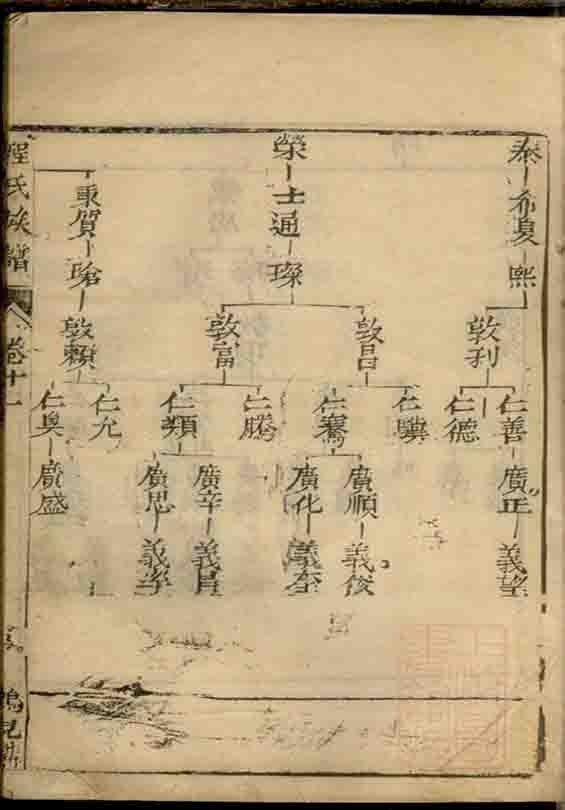 泰 希夐 熙
敦利
仁善 廣正 義望
仁德
榮 士通 璨
敦昌
仁驥
仁騫
廣順 義俊
廣化 義奎
敦富
仁騰
仁類
廣辛 義昌
廣思
秉質 瑲
敦賴
仁允
仁奐 廣盛
程氏族譜
卷十一